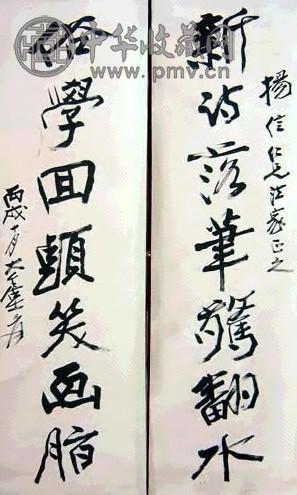 中华收藏网
www.pmv.cn
楊信仁兄法家正之
新詩落筆驚翻水
俗學回頭笑画脂
丙戌十月大千張爰